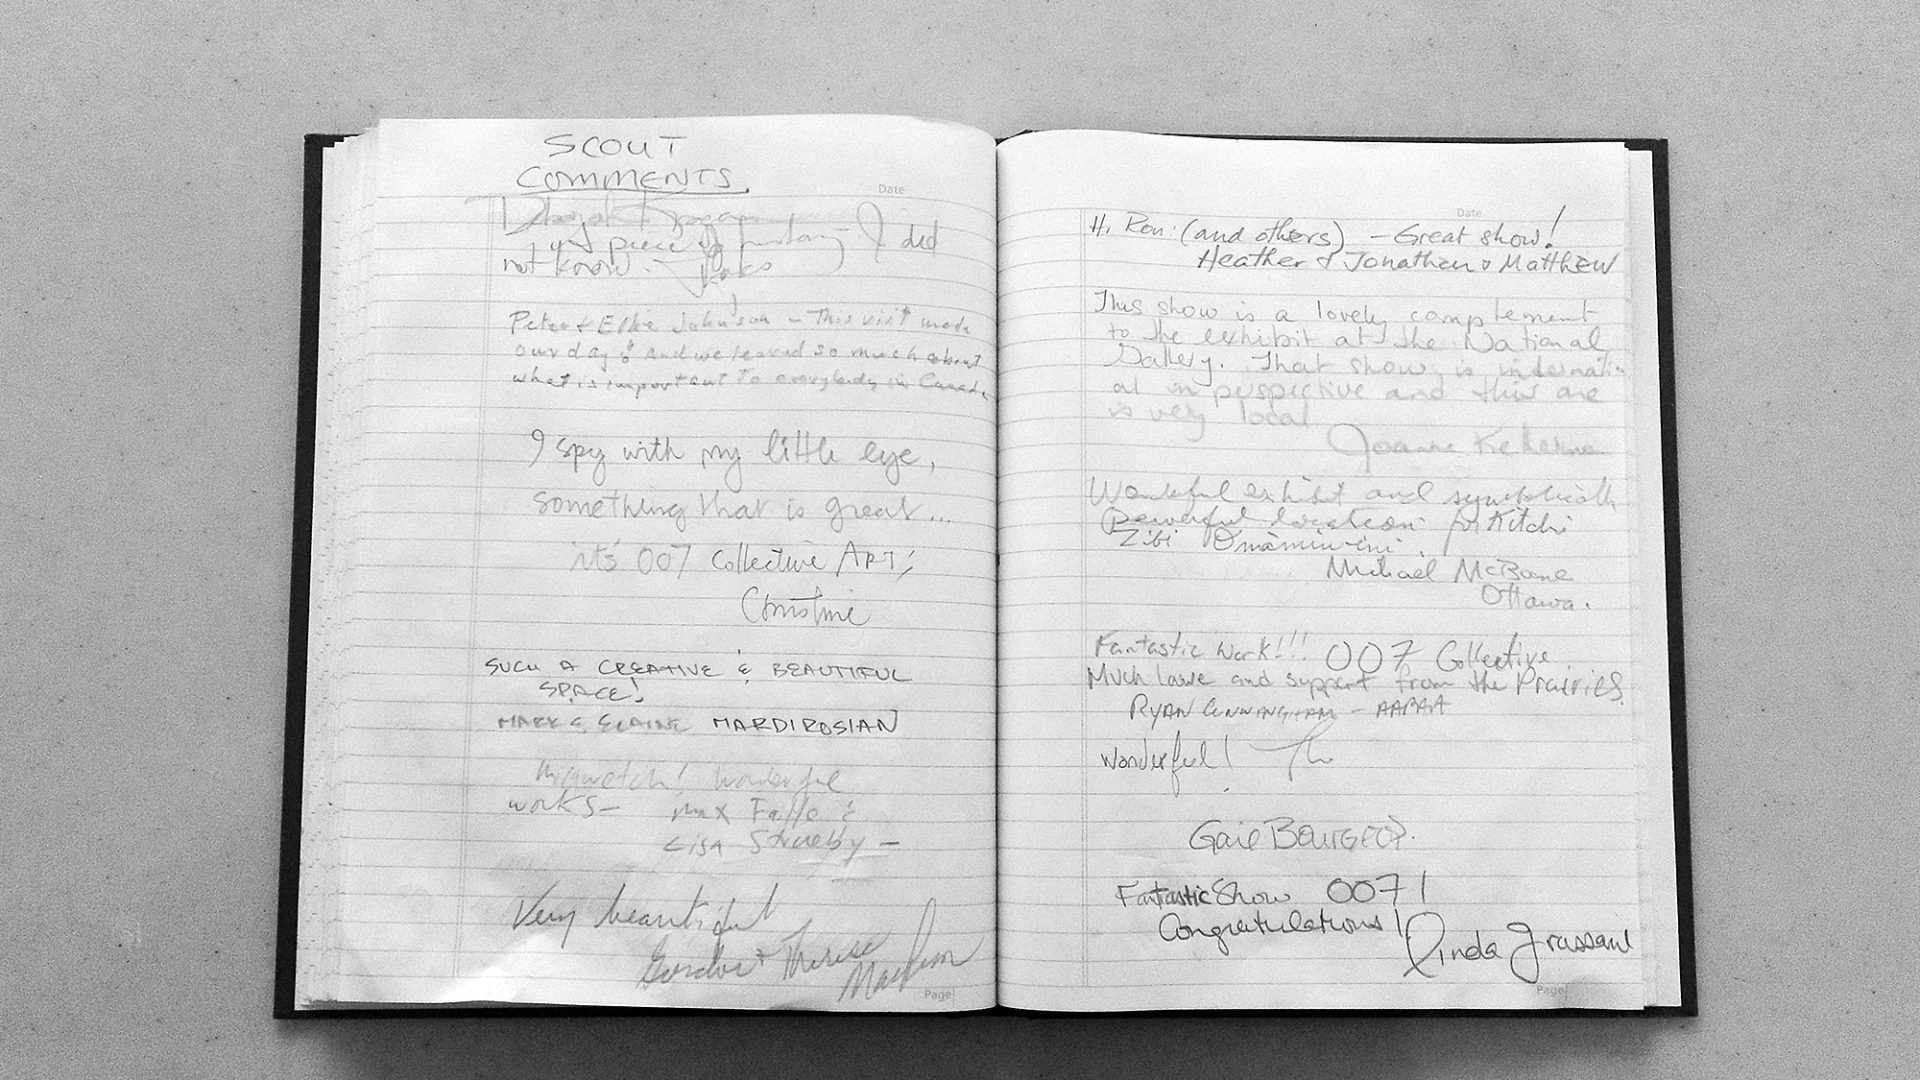 SCOUT
COMMENTS.
Date
piece of I did
not know.
Peter & Elke Johnson – This visit made
our day! And we learned so much about
what is important to everybody in Canada.
I spy with my little eye,
something that is great...
it's 007 Collective ART!
Christine
SUCH A CREATIVE & BEAUTIFUL
SPACE!
MARK & ELAINE MARDIROSIAN
Migwetch! Wonderful
works – Max &
Lisa –
Very beautiful
Gordon & Therese
Page
Date
Hi Ron: (and others) – Great show!
Heather & Jonathan & Matthew
This show is a lovely complement
to the exhibit at the National
Gallery. That show is internation
al in perspective and this one
is very local
Joanne
Wonderful exhibit and symbolically
Powerful location for Kitchi
Zibi Omàmiwinini.
Michael McBane
Ottawa.
Fantastic Work!!! 007 Collective.
Much love and support from the Prairies.
RYAN CUNNINGHAM –
Wonderful!
Gail BOURGEOIS.
Fantastic Show 007!
Congratulations! Linda
Page